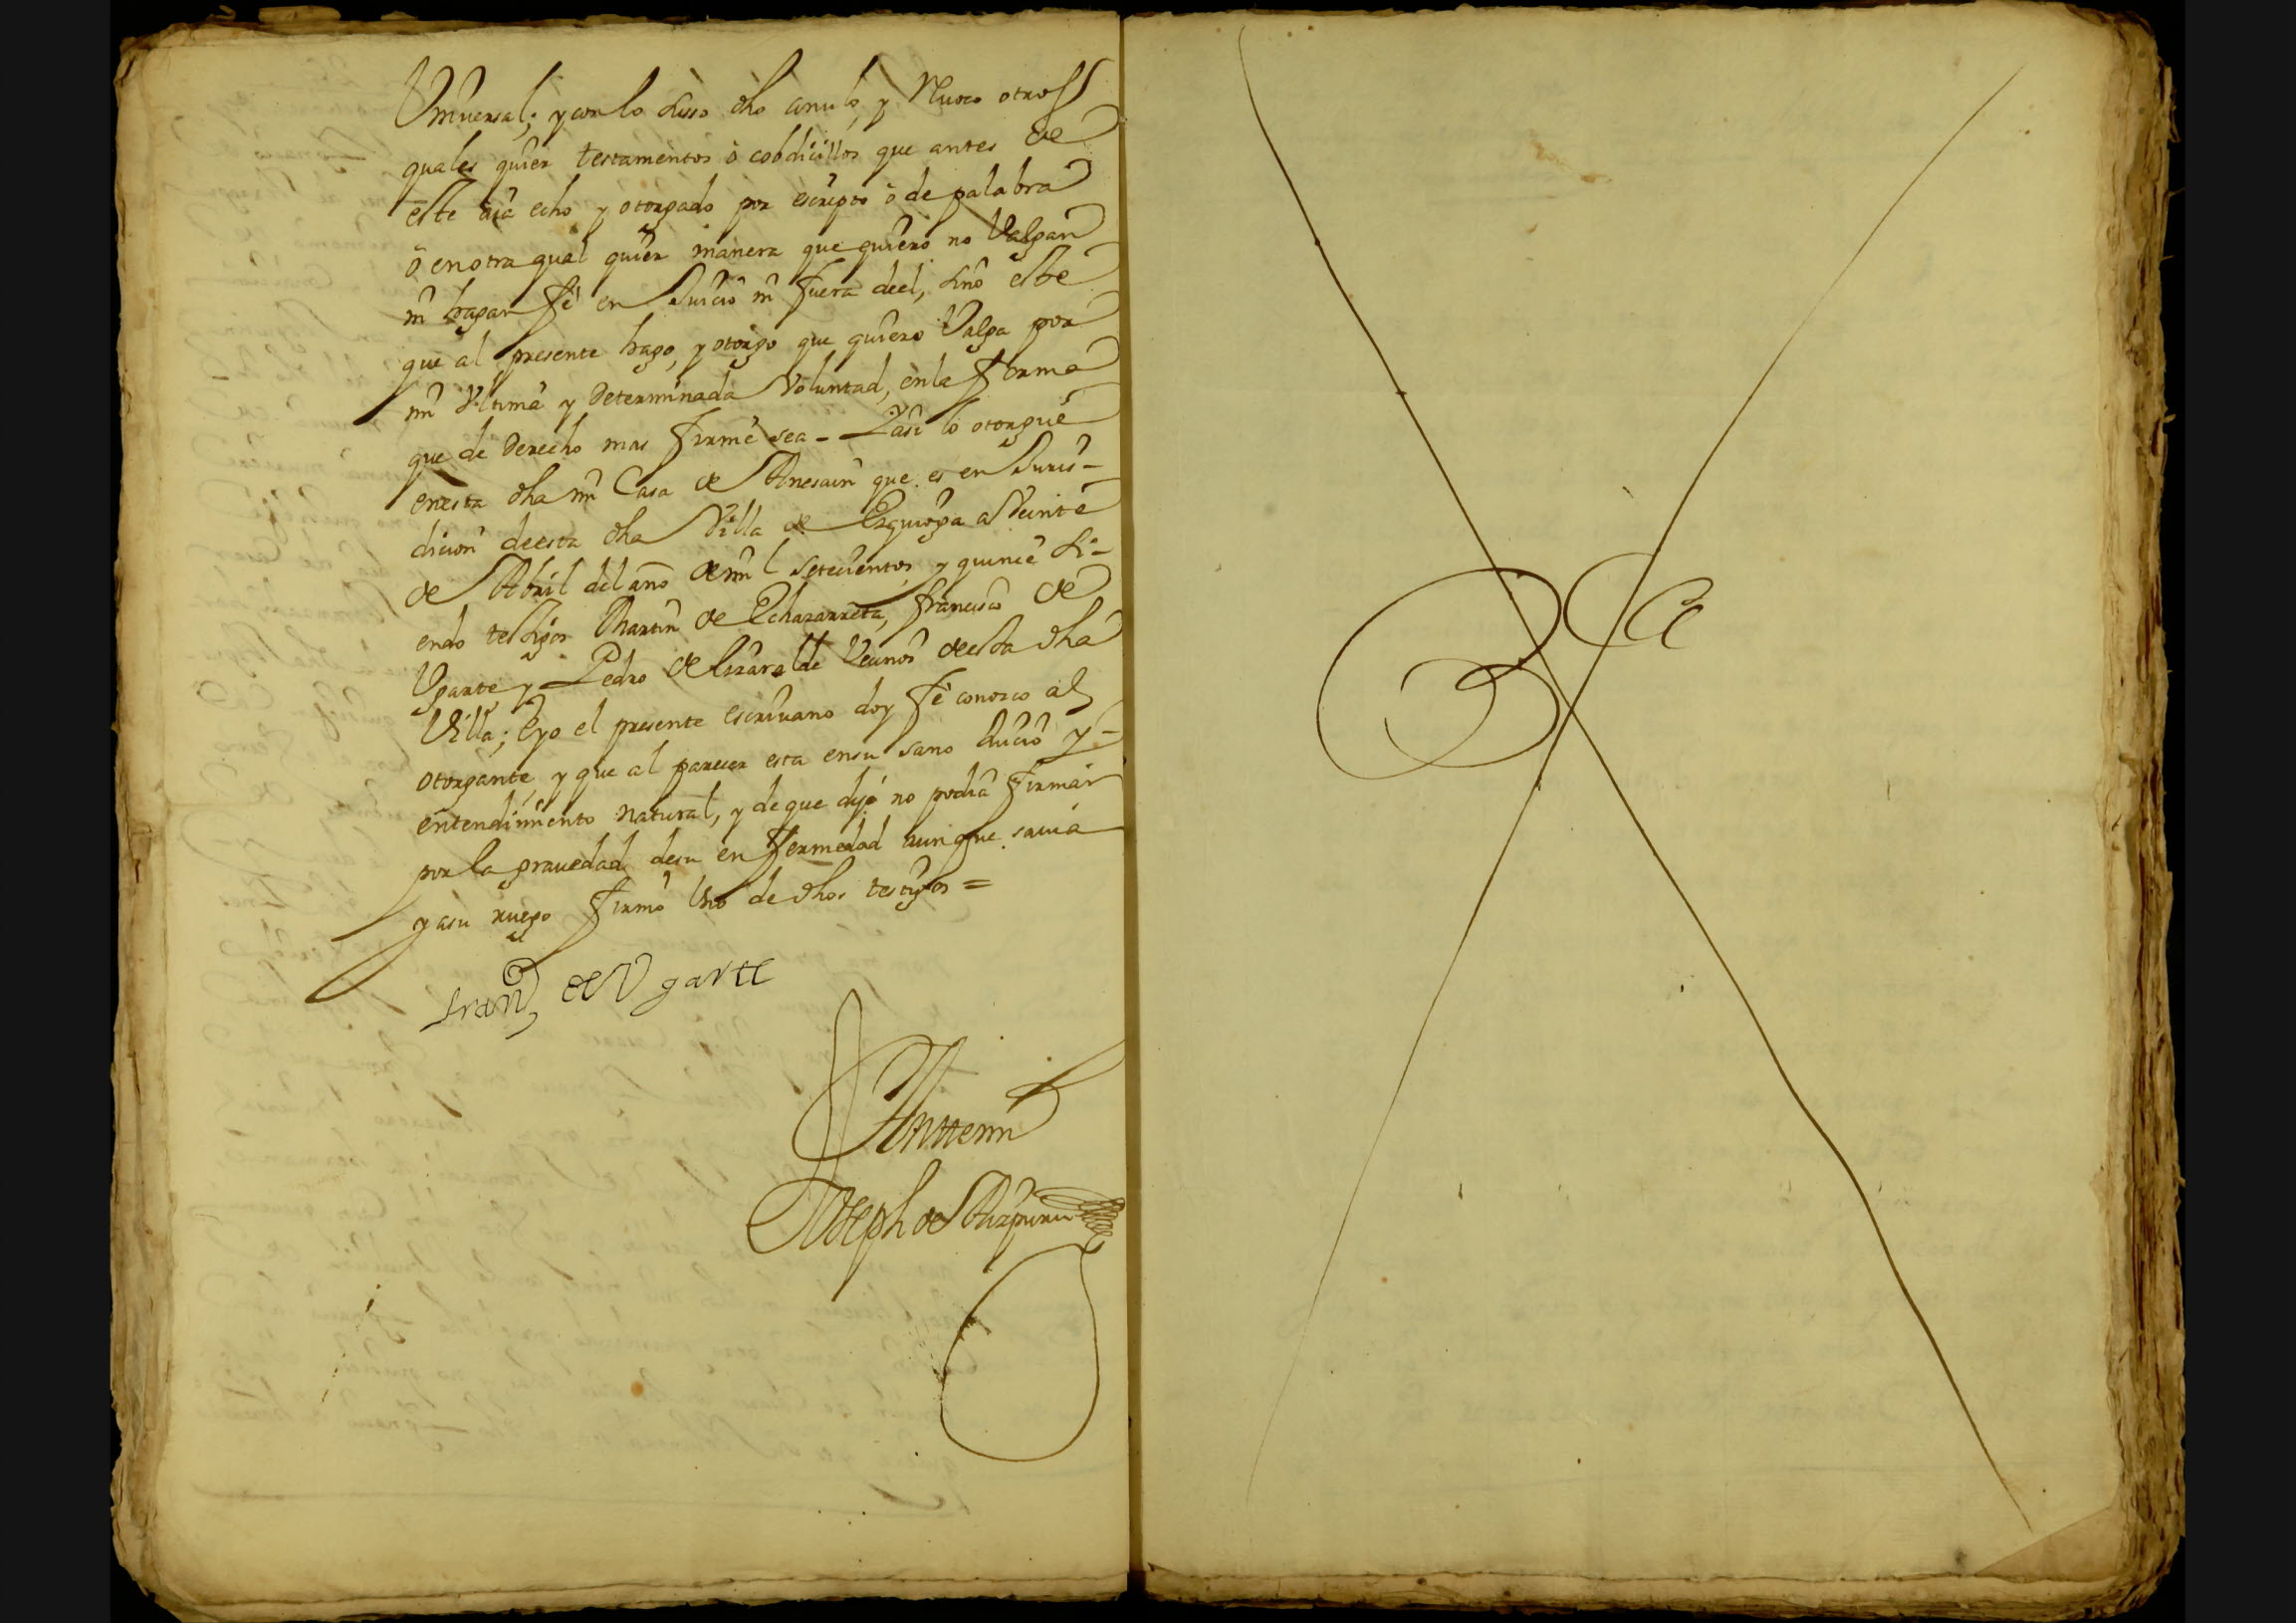 Vniuersal; y con lo suso dho anulo, y Reuoco otros
quales quier testamentos ò cobdicillos que antes de
este aia echo y otorgado por escripto ò de palabra
ò en otra qual quier manera que quiero no Valgan
ni hagan fê en Juicio ni fuera deel, sino este
que al presente hago, y otorgo que quiero Valga por
mi Vltima y Determinada Voluntad, en la forma
que de Derecho mas firme sea - Y asi lo otorguè
en esta dha mi Casa de Anesain que es en Juris-
dicion de esta dha Villa de Ezquioga a Veinte
de Abril del año de mil setecientos y quince si-
endo testigos Martin de Echazarreta, francisco de
Vgarte y Pedro de Lizaralde Vecinos de esta dha
Villa; E yo el presente escriuano doy fê conozco al
otorgante, y que al parecer esta en su sano Juicio y-
entendimiento natural, y de que dijo no podia firmar
por la grauedad de su enfermedad aunque sauia
y a su ruego firmò Vno de dhos testigos =
Fran.co de Vgarte
Antte mi
Joseph de Aizpuru